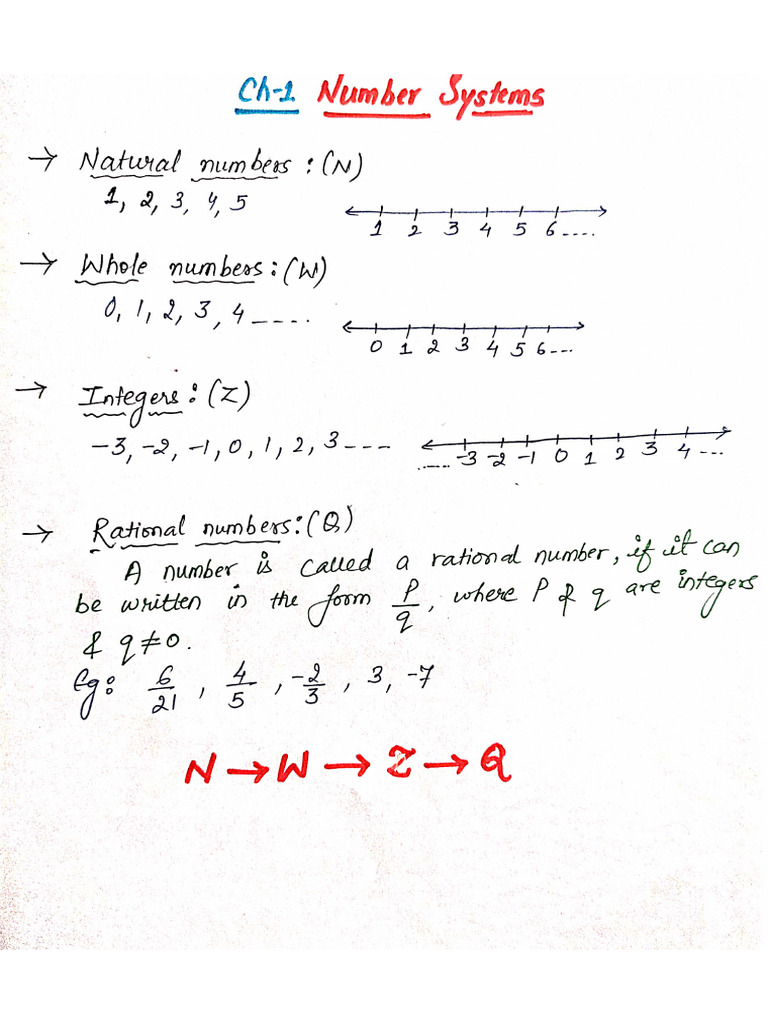 Ch-1 Number Systems
→ Natural numbers : (N)
1, 2, 3, 4, 5
1 2 3 4 5 6....
→ Whole numbers : (W)
0, 1, 2, 3, 4 -----
0 1 2 3 4 5 6---
→ Integers : (Z)
-3, -2, -1, 0, 1, 2, 3 ---
.... -3 -2 -1 0 1 2 3 4 ---
→ Rational numbers : (Q)
A number is called a rational number, if it can
be written in the form P/q, where P & q are integers
& q ≠ 0.
Eg: 6/21, 4/5, -2/3, 3, -7
N → W → Z → Q